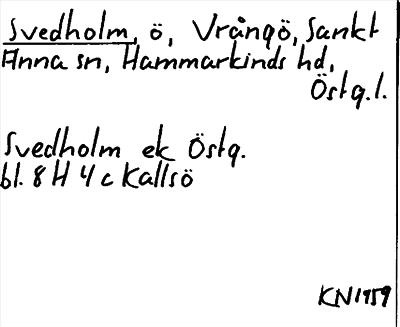 Svedholm, ö, Vrångö, Sankt
Anna sn, Hammarkinds hd,
Östg.l.
Svedholm ek Östg.
bl. 8 H 4 c Kallsö
KN 1959